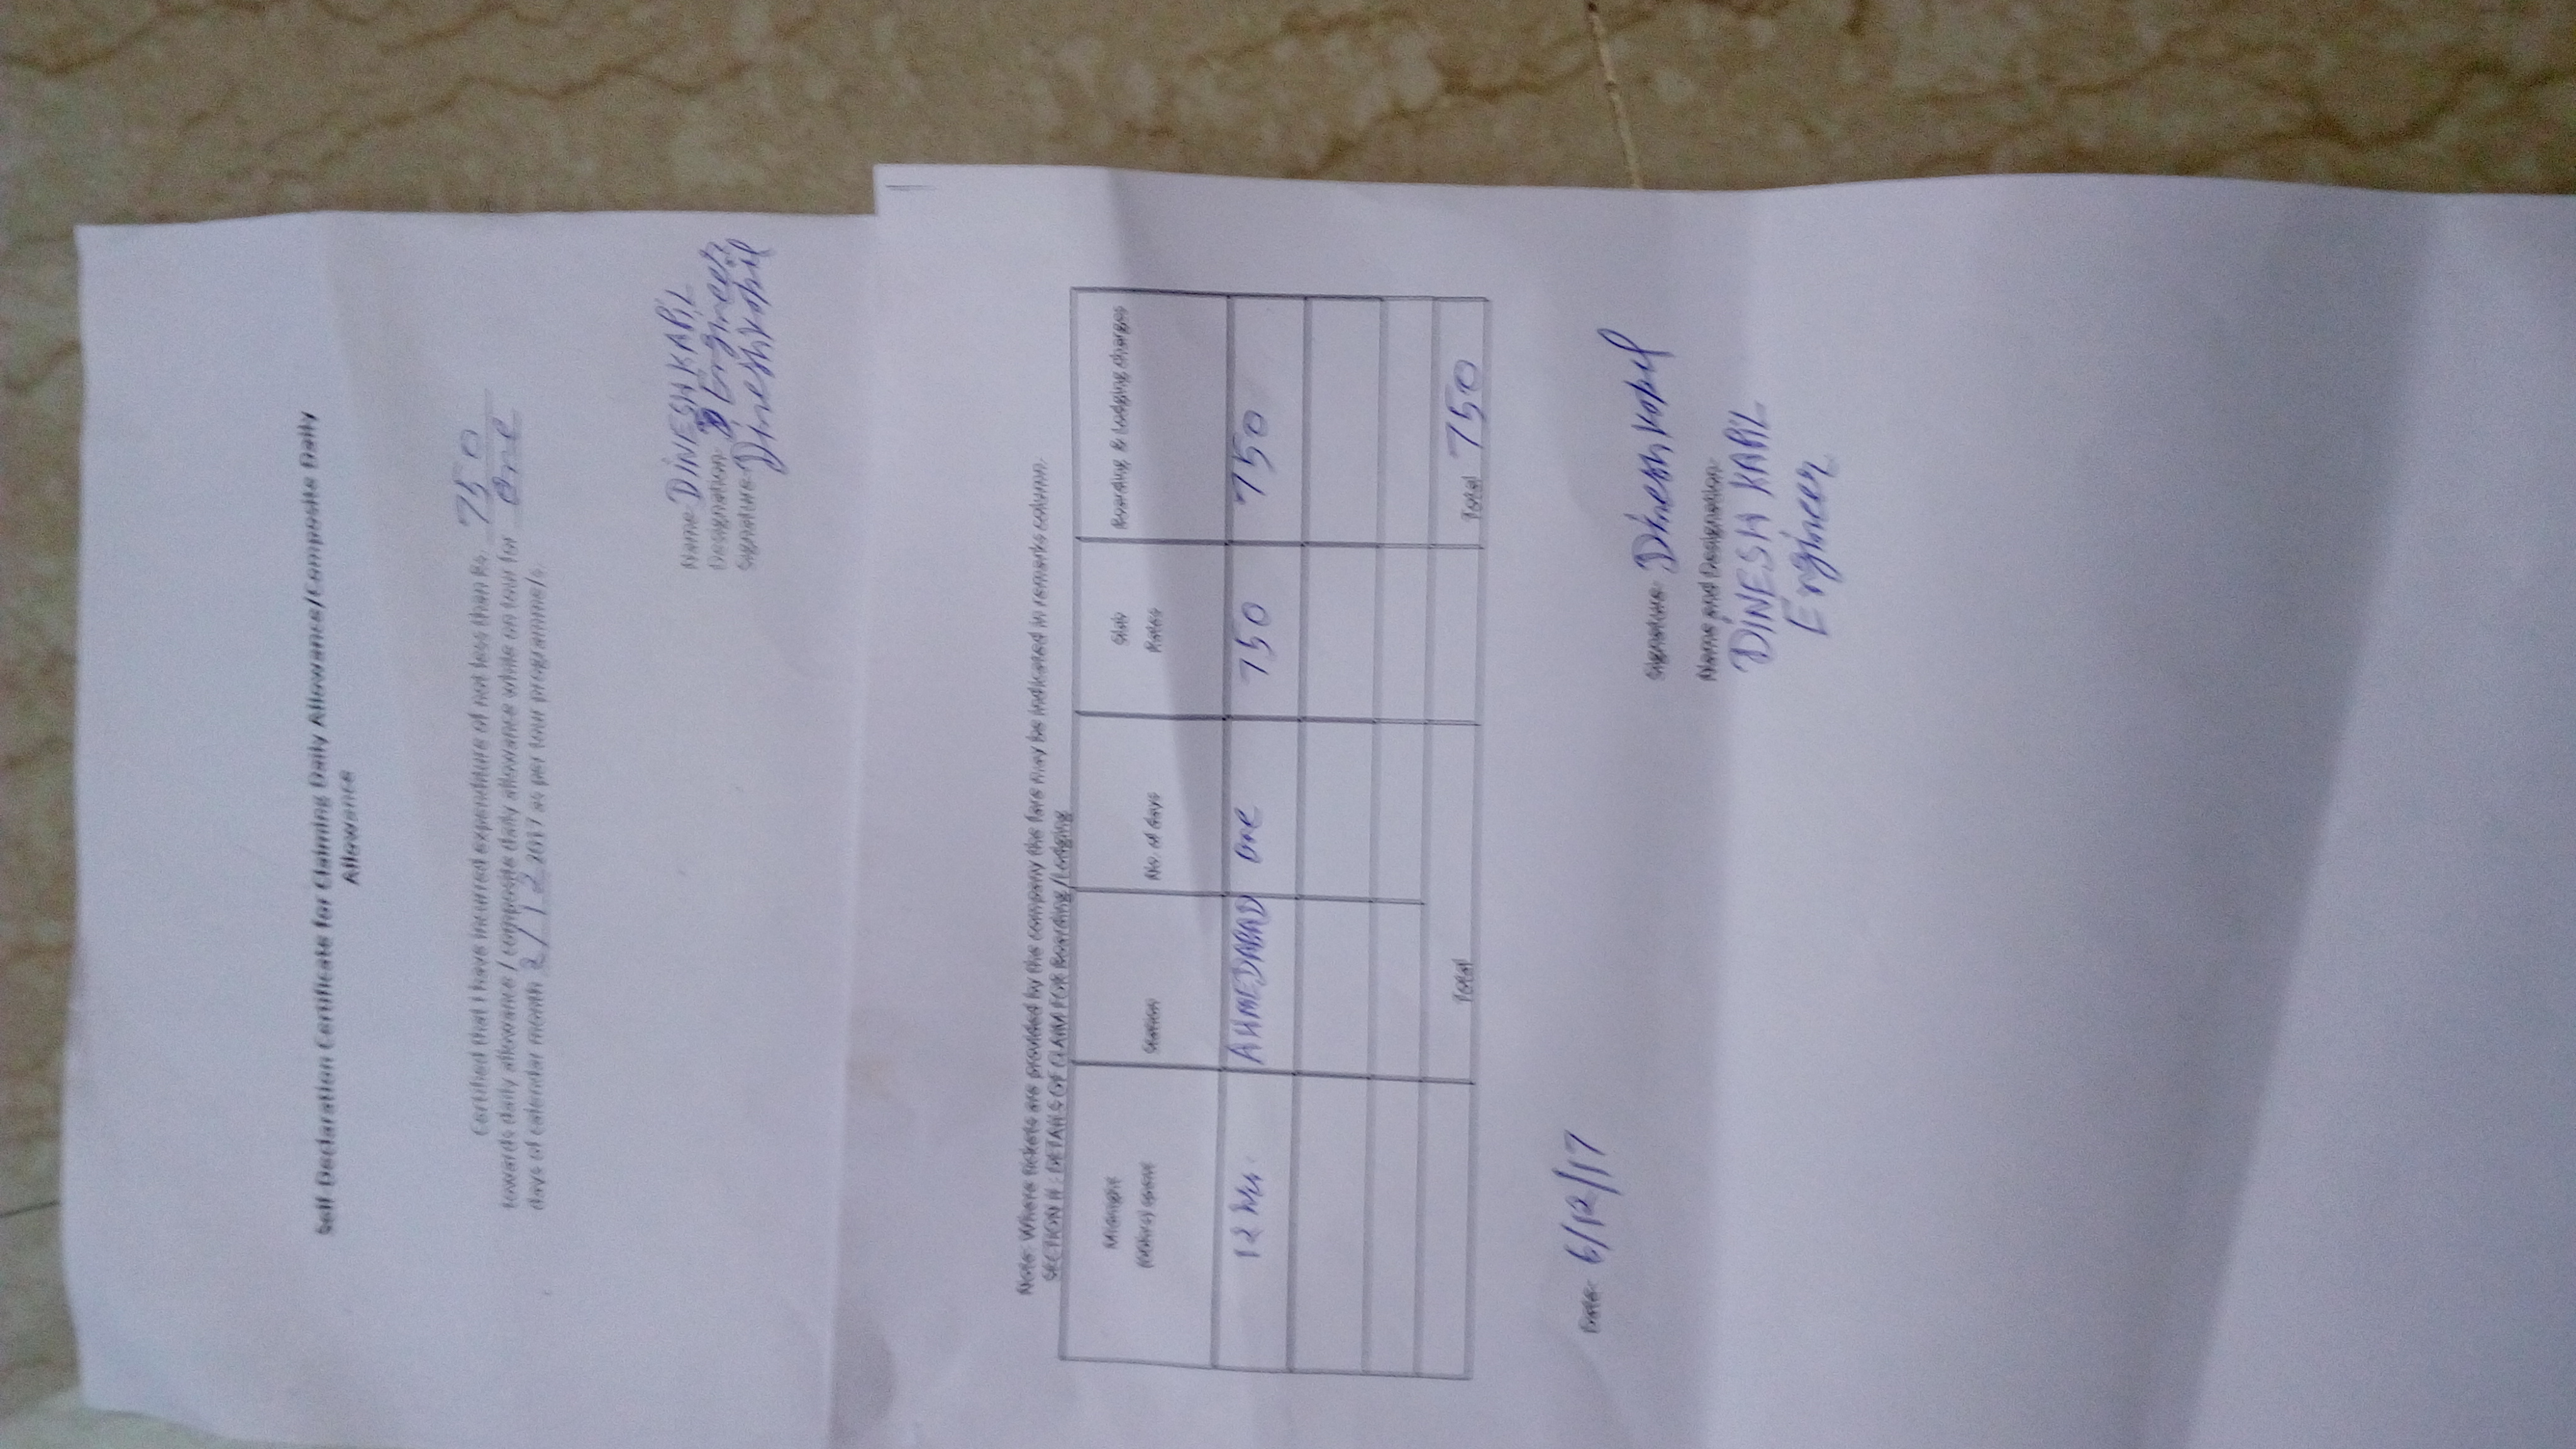 Self Declaration Certificate for Claiming Daily Allowance/Composite Daily
Allowance
Certified that I have incurred expenditure of not less than Rs. 750
towards daily allowance / composite daily allowance while on tour for one
days of calendar month 2/12 2017 as per tour programme/s.
Name: DINESH KAPIL
Designation: Engineer
Signature: Dinesh Kapil
Note: Where tickets are provided by the company the fare may be indicated in remarks column.
SECTION II : DETAILS OF CLAIM FOR Boarding/Lodging
Midnight
Station
No. of days
Slab
Rates
Boarding & Lodging charges
12 hrs. AHMEDABAD one 750 750
Total Total 750
Date: 6/12/17
Signature: Dinesh Kapil
Name and Designation:
DINESH KAPIL
Engineer